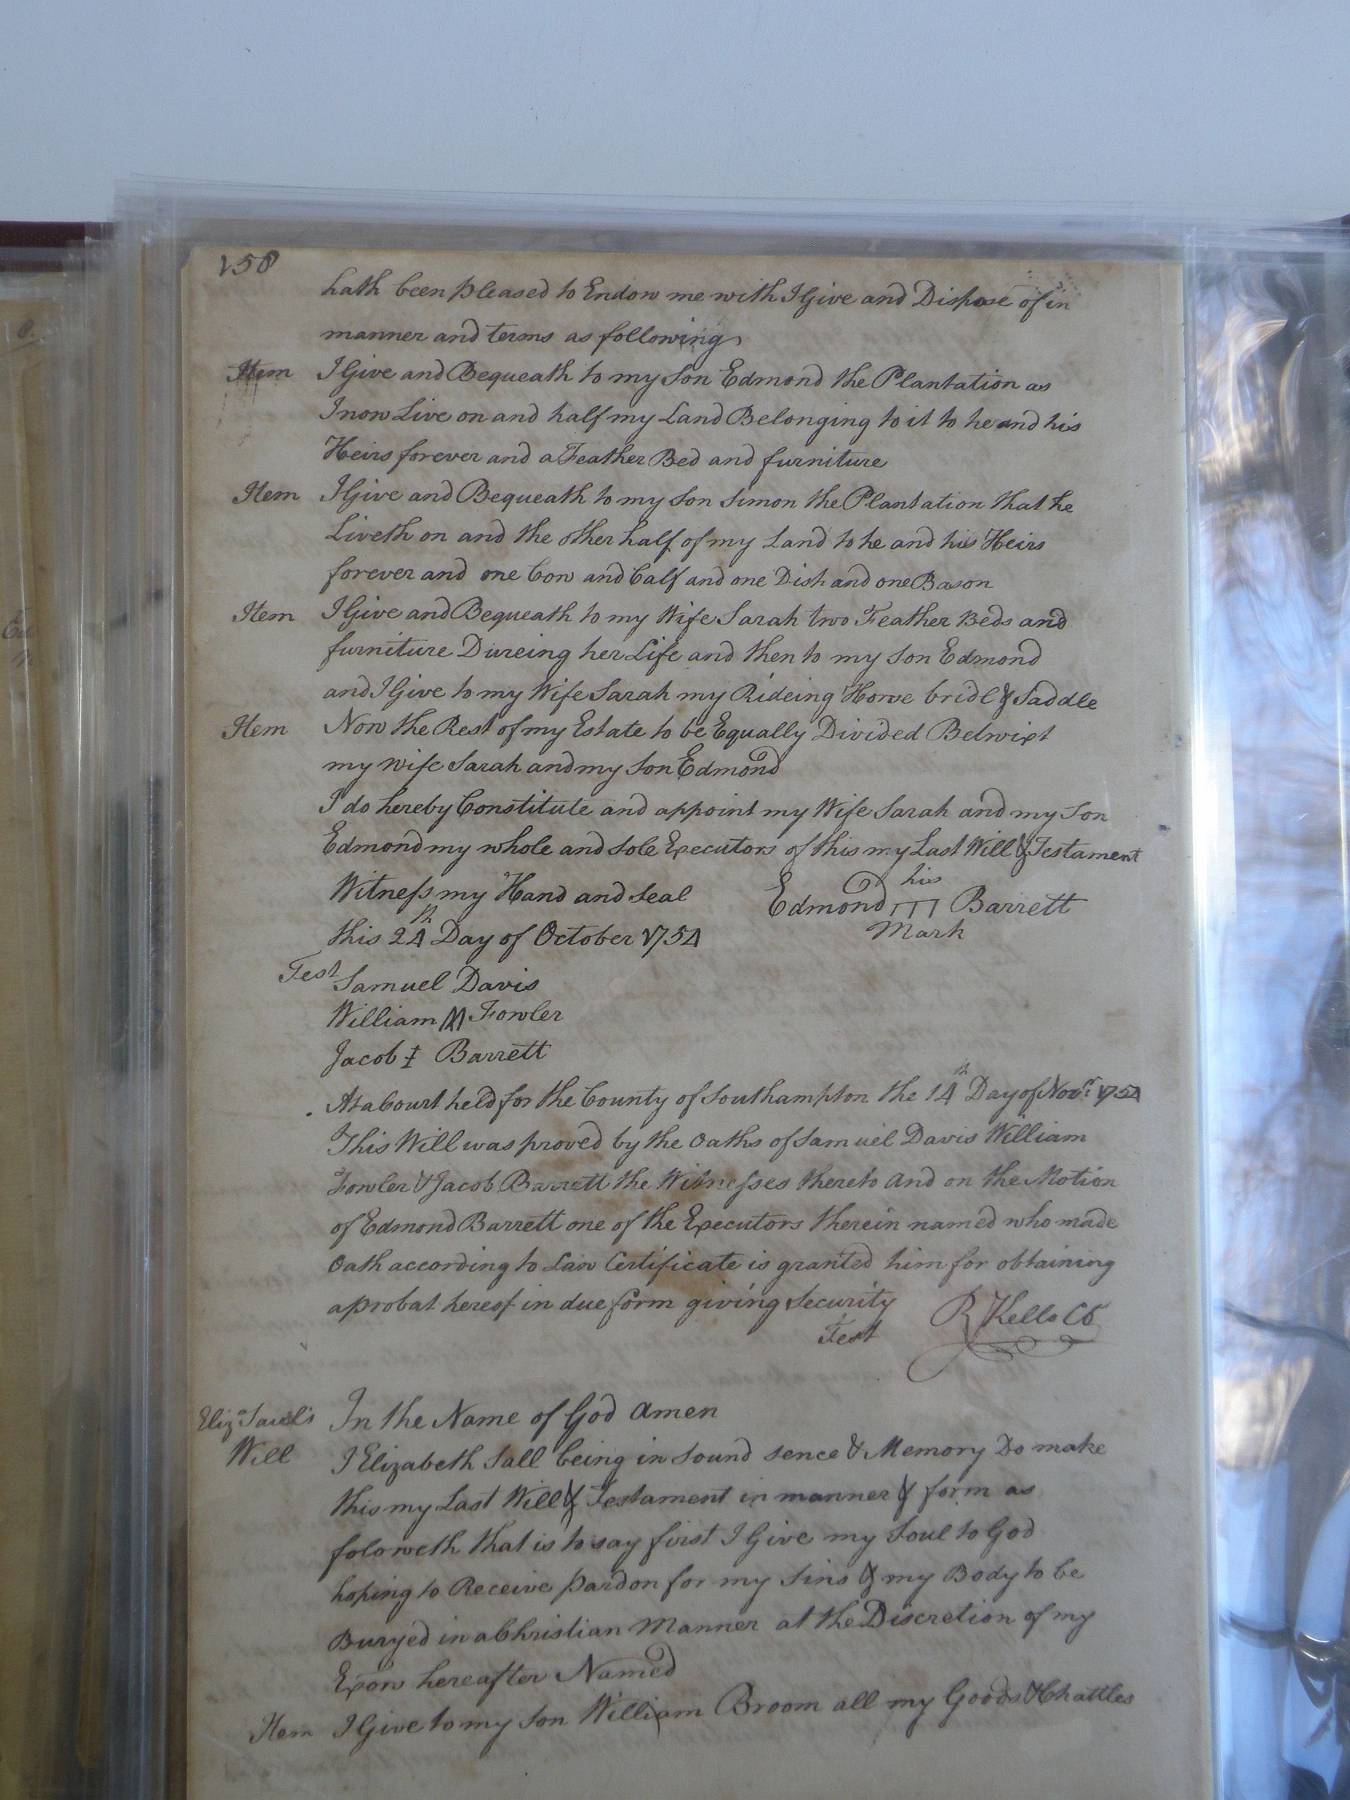 158
hath been pleased to Endow me with I Give and Dispose of in
manner and terms as following
Item I Give and Bequeath to my Son Edmond the Plantation as
I now Live on and half my Land Belonging to it to he and his
Heirs forever and a Feather Bed and furniture
Item I Give and Bequeath to my Son Simon the Plantation that he
Liveth on and the other half of my Land to he and his Heirs
forever and one Cow and Calf and one Dish and one Bason
Item I Give and Bequeath to my Wife Sarah two Feather Beds and
furniture Dureing her Life and then to my Son Edmond
and I Give to my Wife Sarah my Rideing Horse bridl & Saddle
Item Now the Rest of my Estate to be Equally Divided Betwixt
my wife Sarah and my Son Edmond
I do hereby Constitute and appoint my Wife Sarah and my Son
Edmond my whole and sole Executors of this my Last Will & Testament
Witness my Hand and Seal Edmond his Barrett
this 24th Day of October 1754 Mark
Test Samuel Davis
William M Fowler
Jacob ‡ Barrett
At a Court held for the County of Southampton the 14th Day of Novr. 1754
This Will was proved by the oaths of Samuel Davis William
Fowler & Jacob Barrett the Witnesses thereto and on the Motion
of Edmond Barrett one of the Executors therein named who made
Oath according to Law Certificate is granted him for obtaining
a probat hereof in due form giving Security
Test R Kello CC
Eliza Saul's In the Name of God Amen
Will I Elizabeth Sall being in Sound sence & Memory Do make
this my Last Will & Testament in manner & form as
foloweth that is to say first I Give my Soul to God
hoping to Receive pardon for my Sins & my Body to be
Buryed in a Christian Manner at the Discretion of my
Exon hereafter Named
Item I Give to my Son William Broom all my Goods & Chattles